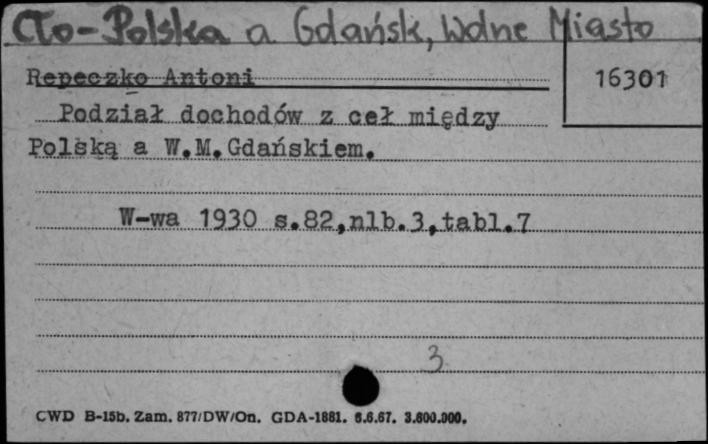 Cło-Polska a Gdańsk, Wolne Miasto
Repeczko Antoni
16301
Podział dochodów z ceł między
Polską a W.M.Gdańskiem.
W-wa 1930 s.82,nlb.3,tabl.7
3
CWD B-15b. Zam. 877/DW/On. GDA-1881. 6.6.67. 3.600.000.